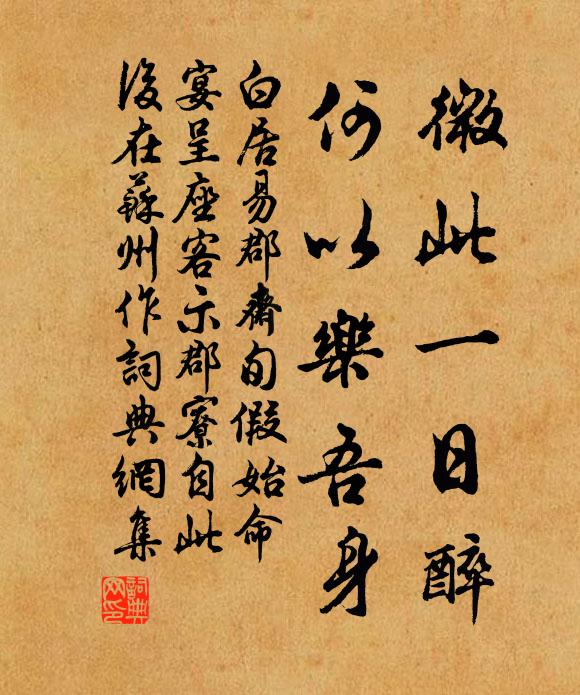 微此一日醉
何以樂吾身
白居易郡齋旬假始命
宴呈座客示郡寮自此
後在蘇州作詞典網集
詞典
网印